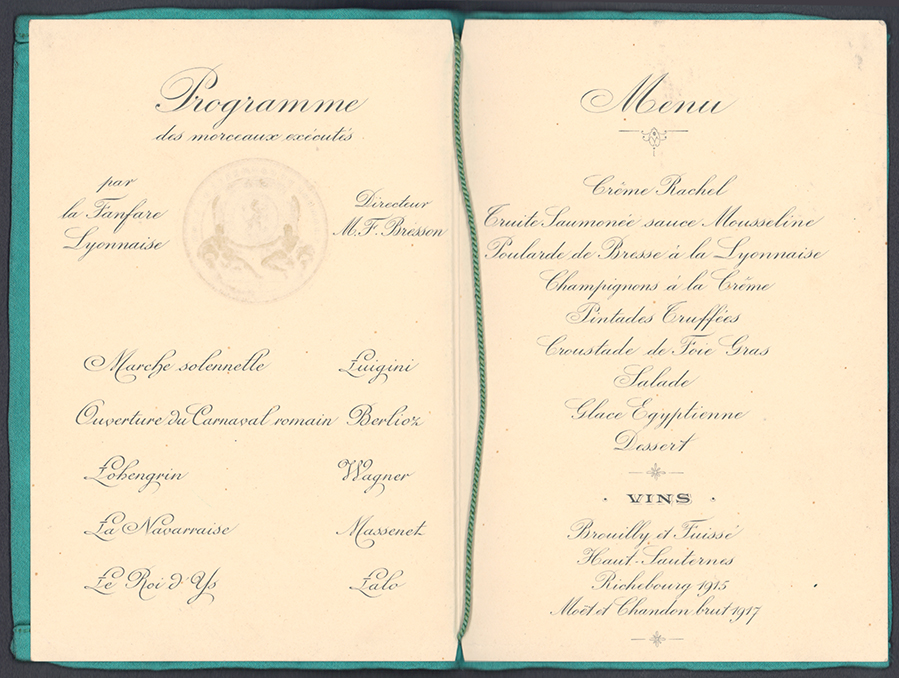 Programme
des morceaux exécutés
par
la Fanfare
Lyonnaise
Directeur
M. F. Bresson
Marche solennelle Luigini
Ouverture du Carnaval romain Berlioz
Lohengrin Wagner
La Navarraise Massenet
Le Roi d'Ys Lalo
Menu
Crème Rachel
Truite Saumonée sauce Mousseline
Poularde de Bresse à la Lyonnaise
Champignons à la Crême
Pintades Truffées
Croustade de Foie Gras
Salade
Glace Egyptienne
Dessert
· VINS ·
Brouilly et Fuissé
Haut-Sauternes
Richebourg 1915
Moët et Chandon brut 1917